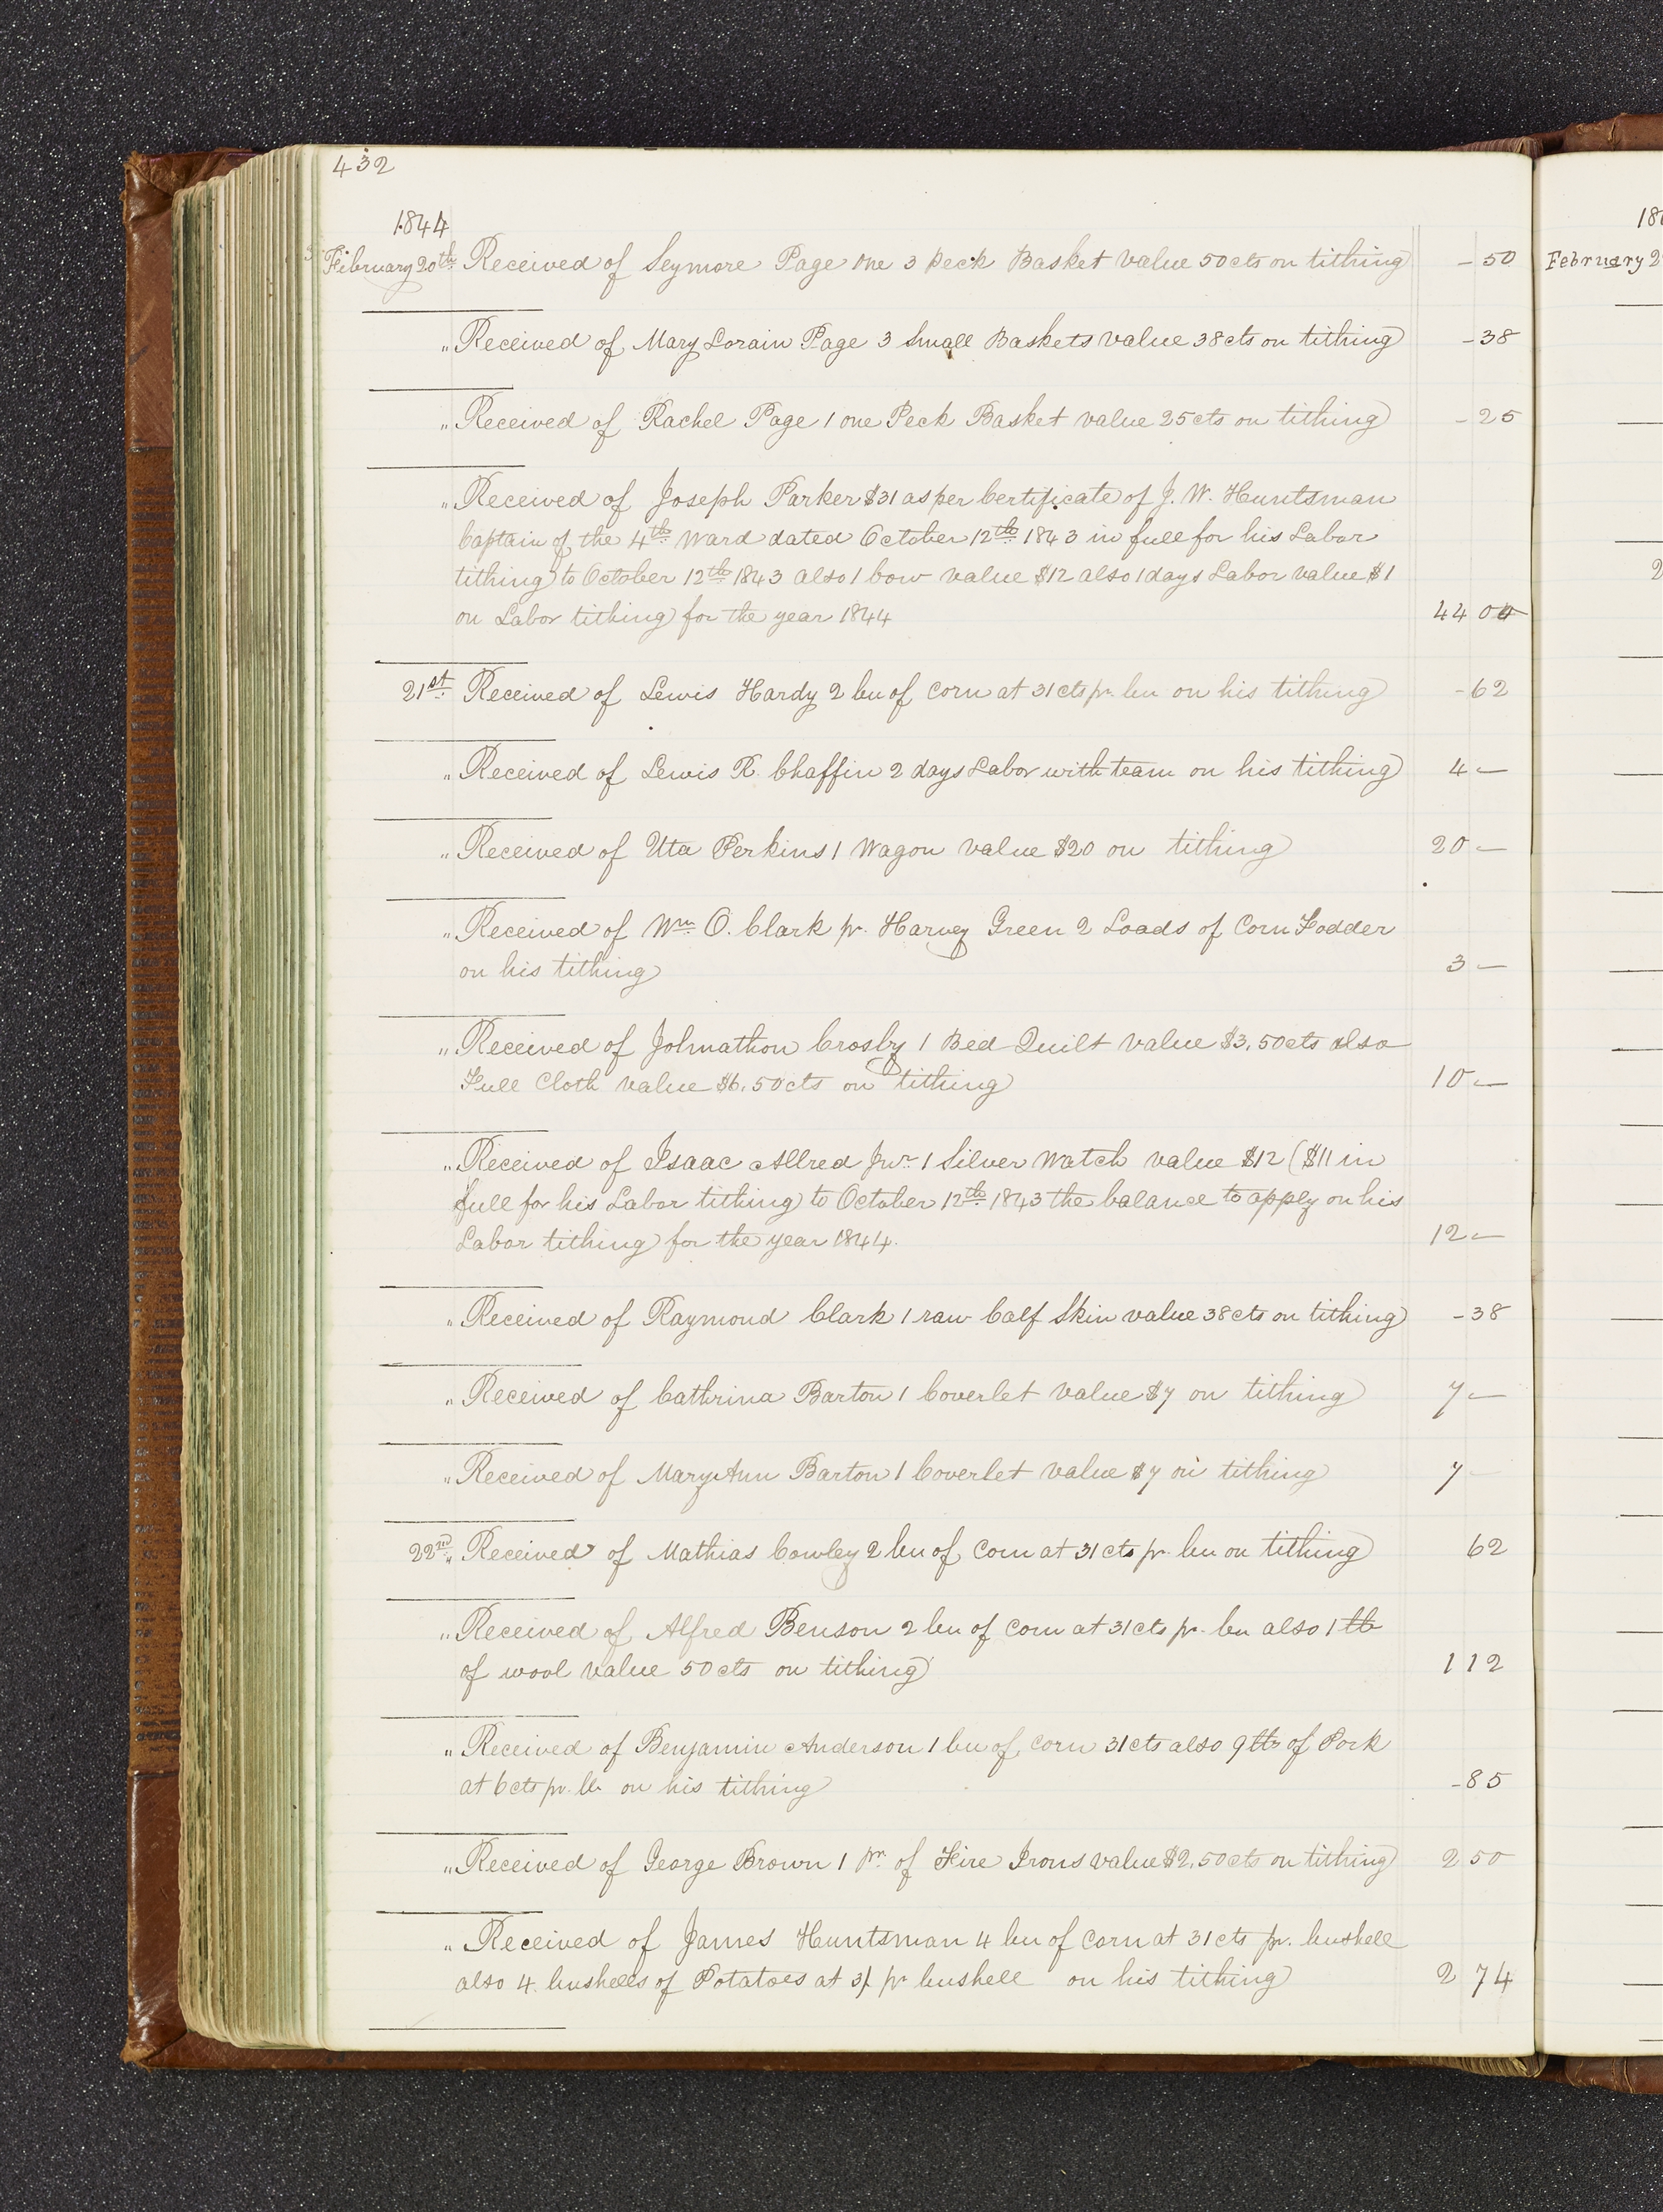 432
1844
February 20th Received of Seymore Page one 3 Peck Basket value 50cts on tithing -50
" Received of Mary Lorain Page 3 Small Baskets value 38cts on tithing -38
" Received of Rachel Page 1 one Peck Basket value 25cts on tithing -25
" Received of Joseph Parker $31 as per Certificate of J. W. Huntsman
Captain of the 4th Ward dated October 12th 1843 in full for his Labor
tithing to October 12th 1843 also 1 cow value $12 also 1 days Labor value $1
on Labor tithing for the year 1844 44 00
21st Received of Lewis Hardy 2 bu of corn at 31cts pr. bu on his tithing -62
" Received of Lewis R. Chaffin 2 days Labor with team on his tithing 4 —
" Received of Uta Perkins 1 Wagon value $20 on tithing 20 —
" Received of Wm O. Clark pr. Harvey Green 2 Loads of Corn Fodder
on his tithing 3 —
" Received of Johnathon Crosby 1 Bed Quilt value $3.50cts also
Full Cloth value $6.50cts on tithing 10 —
" Received of Isaac Allred Junr 1 Silver Watch value $12 ($11 in
full for his Labor tithing to October 12th 1843 the balance to apply on his
Labor tithing for the year 1844. 12 —
" Received of Raymond Clark 1 raw Calf Skin value 38cts on tithing -38
" Received of Cathrina Barton 1 Coverlet value $7 on tithing 7 —
" Received of Mary Ann Barton 1 Coverlet value $7 on tithing 7 -
22nd " Received of Mathias Cowley 2 bu of Corn at 31cts pr. bu on tithing 62
" Received of Alfred Benson 2 bu of corn at 31cts pr. bu also 1 lb
of wool value 50cts on tithing 1 12
" Received of Benjamin Anderson 1 bu of corn 31cts also 9 lbs of Pork
at 6cts pr. lb on his tithing -85
" Received of George Brown 1 pr. of Fire Irons value $2.50cts on tithing 2 50
" Received of James Huntsman 4 bu of Corn at 31cts pr. bushell
also 4 bushells of Potatoes at pr bushell on his tithing 2 74
February 2